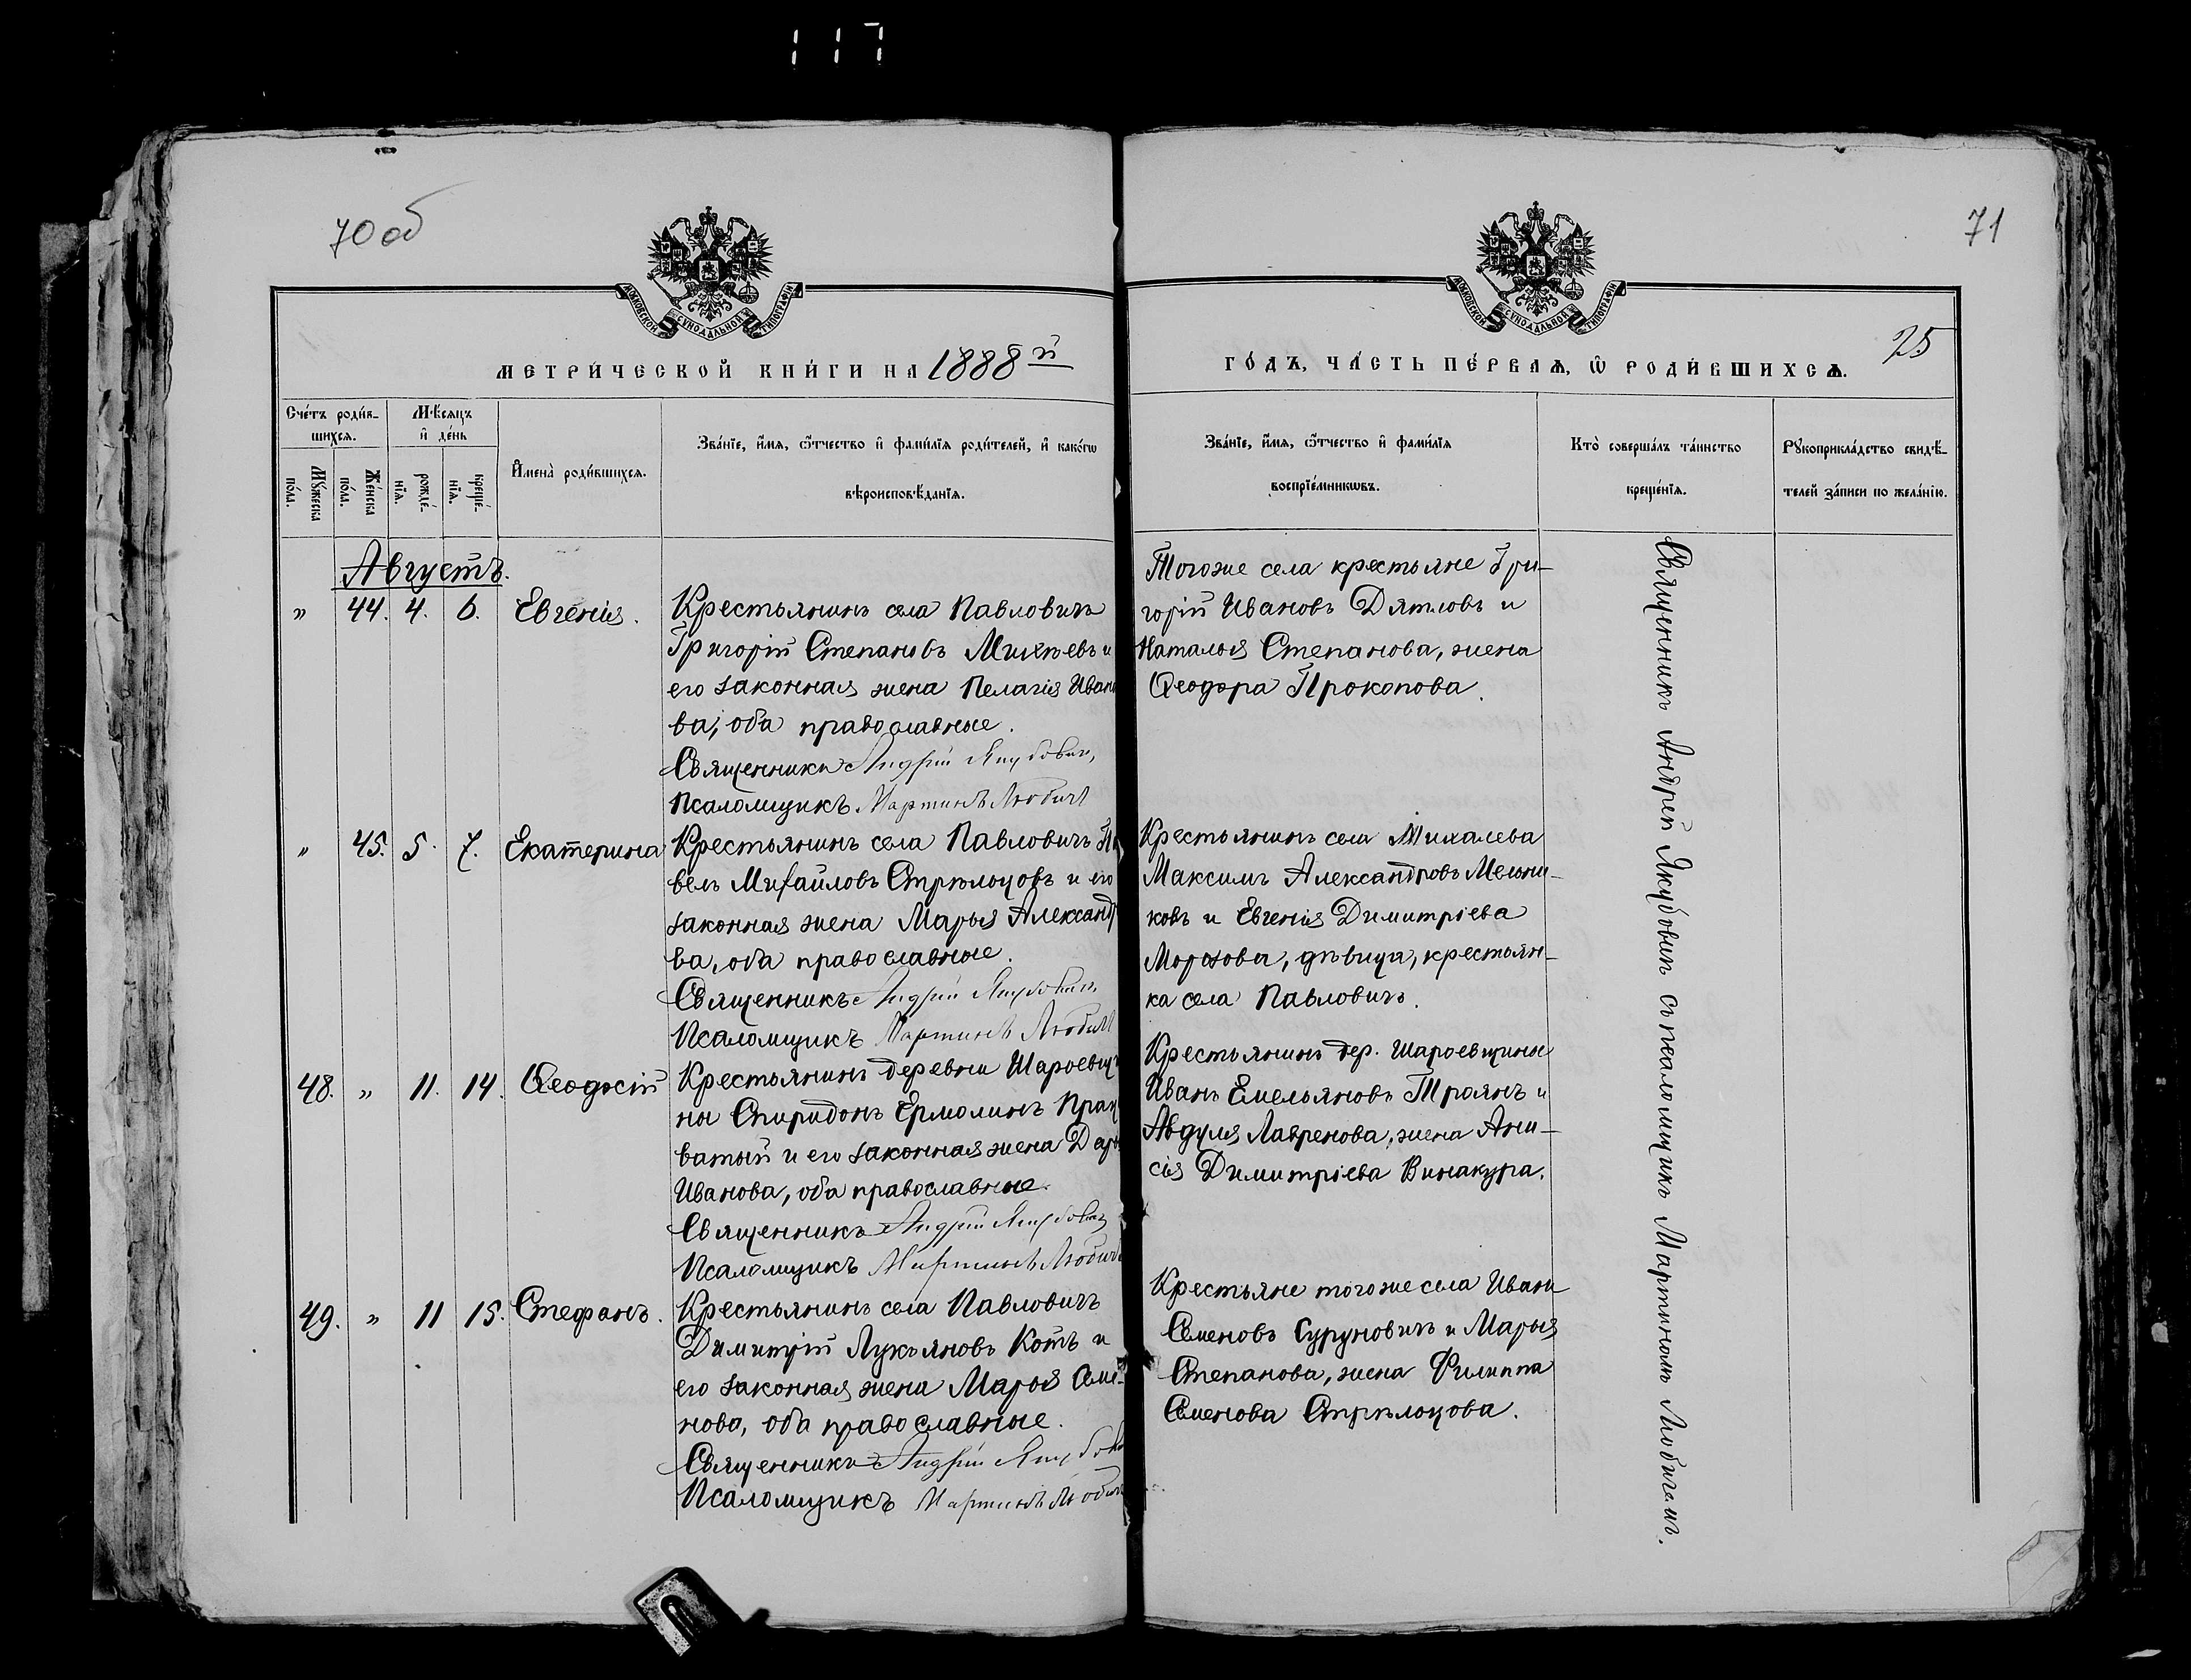 117
70 об
71
МОСКОВСКОЙ СѴНОДАЛЬНОЙ ТИПОГРАФІИ
МОСКОВСКОЙ СѴНОДАЛЬНОЙ ТИПОГРАФІИ
25
МЕТРИ́ЧЕСКОЙ КНИ́ГИ НА 1888й
ГО́ДЪ, ЧА́СТЬ ПЕ́РВАѦ, Ѡ҆ РОДИ́ВШИХСѦ.
Сче́тъ роди́в-
шихсѧ.
Мѣ́сѧцъ
и҆ де́нь
Мꙋ́жеска
по́ла.
Же́нска
по́ла.
рожде́-
нїѧ.
креще́-
нїѧ.
И҆мена̀ роди́вшихсѧ.
Зва́нїе, и҆́мѧ, ѻ҆́тчество и҆ фами́лїѧ роди́телей, и҆ како́гѡ
вѣроисповѣ́данїѧ.
Зва́нїе, и҆́мѧ, ѻ҆́тчество и҆ фами́лїѧ
воспрїе́мникѡвъ.
Кто̀ соверша́лъ та́инство
креще́нїѧ.
Рꙋкоприкла́дство свидѣ́-
телей за́писи по жела́нїю.
Августъ.
„ 44. 4. 6. Евгенія.
Крестьянинъ села Павловичъ
Григорій Степановъ Михѣевъ и
его законная жена Пелагія Ивано
ва, оба православные.
Священникъ Андрей Якубовичъ
Псаломщикъ Мартинъ Любичъ
Тогоже села крестьяне Гри-
горій Ивановъ Дятловъ и
Наталья Степанова, жена
Ѳеодора Прокопова.
„ 45. 5. 7. Екатерина
Крестьянинъ села Павловичъ Па
велъ Михайловъ Стрѣльцовъ и его
законная жена Марья Александр
ва, оба православные.
Священникъ Андрей Якубовичъ
Псаломщикъ Мартинъ Любичъ
Крестьянинъ села Михалева
Максимъ Александровъ Мельни-
ковъ и Евгенія Димитріева
Морозова, дѣвица, крестьян-
ка села Павловичъ.
48. „ 11. 14. Ѳеодосій
Крестьянинъ деревни Шароевщи
ны Спиридонъ Ермолинъ
ватый и его законная жена Дарья
Иванова, оба православные.
Священникъ Андрей Якубовичъ
Псаломщикъ Мартинъ Любичъ
Крестьянинъ дер. Шароевщины
Иванъ Емельяновъ Троянъ и
Авдуля Лавренова, жена Ани-
сія Димитріева Винакура.
49. „ 11 15. Стефанъ.
Крестьянинъ села Павловичъ
Димитрій Лукьяновъ Котъ и
его законная жена Марья Семе-
нова, оба православные.
Священникъ Андрей Якубовичъ
Псаломщикъ Мартинъ Любичъ
Крестьяне тогоже села Иванъ
Семеновъ Суруновичъ и Марья
Степанова, жена Филиппа
Семенова Стрѣльцова.
Священникъ Андрей Якубовичъ съ псаломщикъ Мартиномъ Любичемъ.